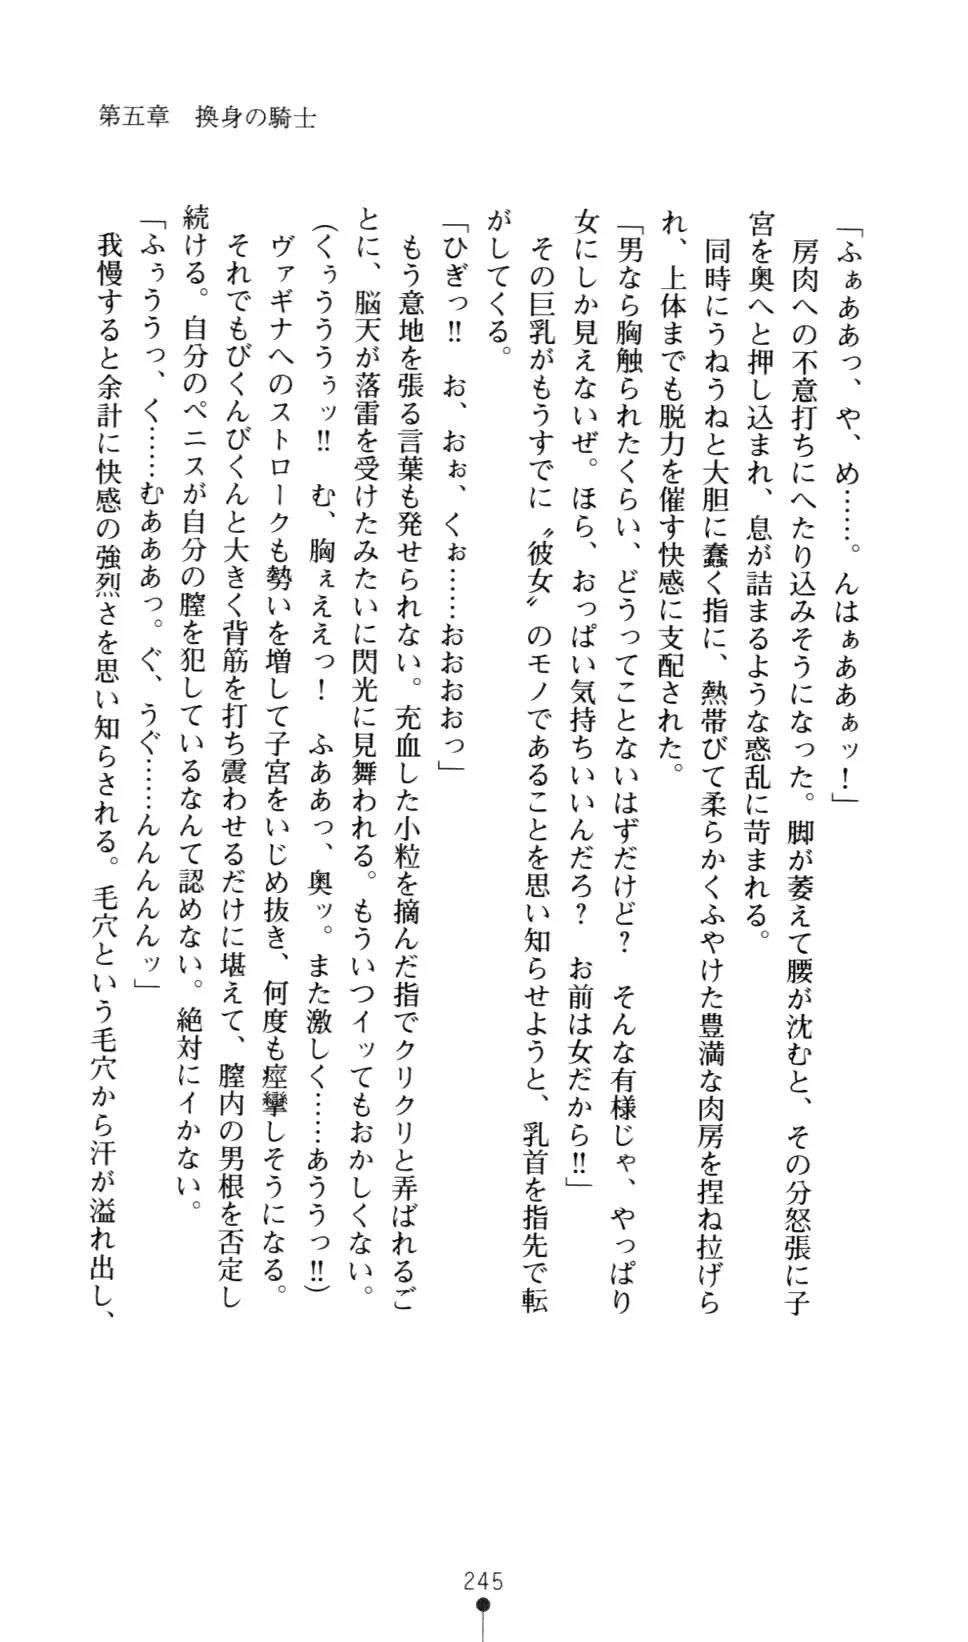 第五章　換身の騎士
「ふぁああっ、や、め……。んはぁああぁッ！」
　房肉への不意打ちにへたり込みそうになった。脚が萎えて腰が沈むと、その分怒張に子
宮を奥へと押し込まれ、息が詰まるような惑乱に苛まれる。
　同時にうねうねと大胆に蠢く指に、熱帯びて柔らかくふやけた豊満な肉房を捏ね拉げら
れ、上体までも脱力を催す快感に支配された。
「男なら胸触られたくらい、どうってことないはずだけど？　そんな有様じゃ、やっぱり
女にしか見えないぜ。ほら、おっぱい気持ちいいんだろ？　お前は女だから‼」
　その巨乳がもうすでに〝彼女〟のモノであることを思い知らせようと、乳首を指先で転
がしてくる。
「ひぎっ‼　お、おぉ、くぉ……おおおおっ」
　もう意地を張る言葉も発せられない。充血した小粒を摘んだ指でクリクリと弄ばれるご
とに、脳天が落雷を受けたみたいに閃光に見舞われる。もういつイッてもおかしくない。
（くぅうううぅッ‼　む、胸ぇええっ！　ふああっ、奥ッ。また激しく……あううっ‼）
　ヴァギナへのストロークも勢いを増して子宮をいじめ抜き、何度も痙攣しそうになる。
　それでもびくんびくんと大きく背筋を打ち震わせるだけに堪えて、膣内の男根を否定し
続ける。自分のペニスが自分の膣を犯しているなんて認めない。絶対にイかない。
「ふぅううっ、く……むあああっ。ぐ、うぐ……んんんんんッ」
　我慢すると余計に快感の強烈さを思い知らされる。毛穴という毛穴から汗が溢れ出し、
245